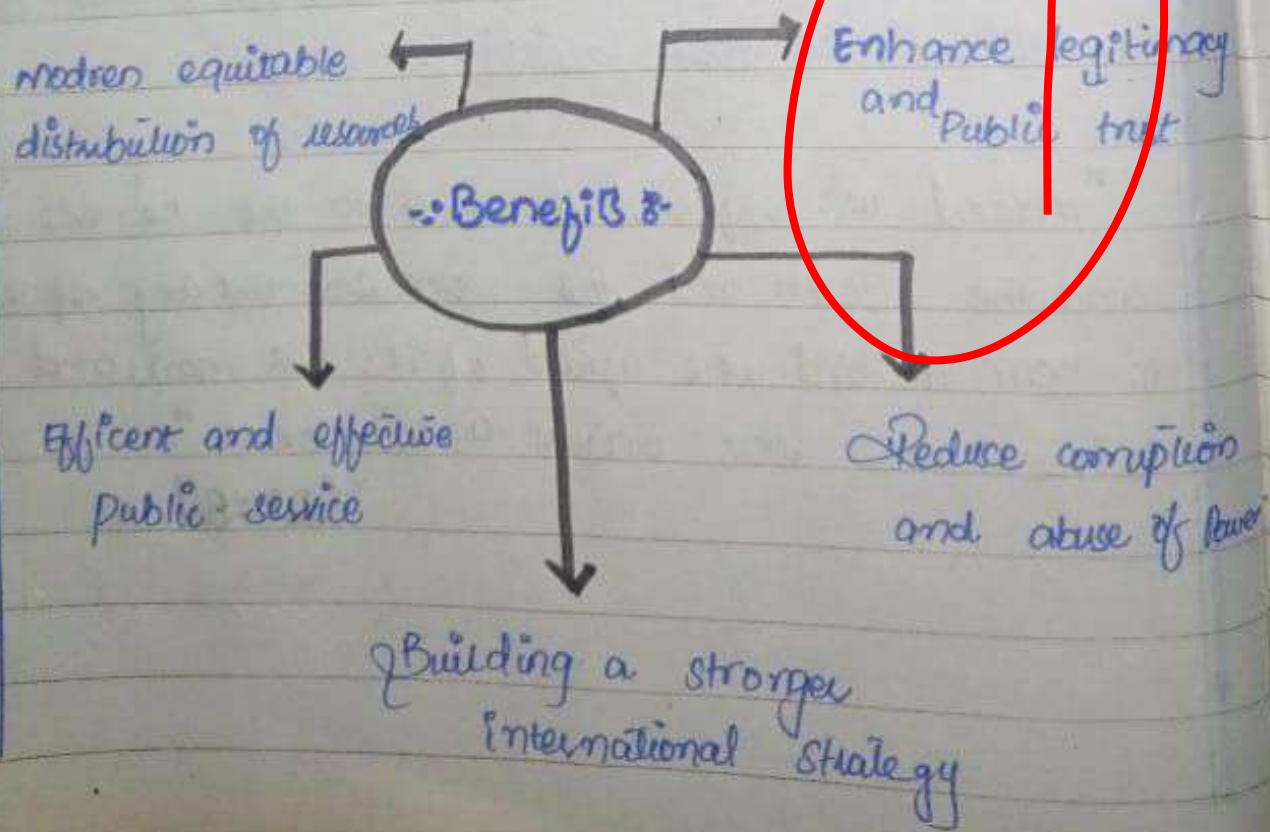 Modren equitable
distribution of resources
Enhance legitimacy
and Public trust
-:Benefits:-
Efficent and effective
public service
Reduce corruption
and abuse of Power
Building a stronger
international strategy